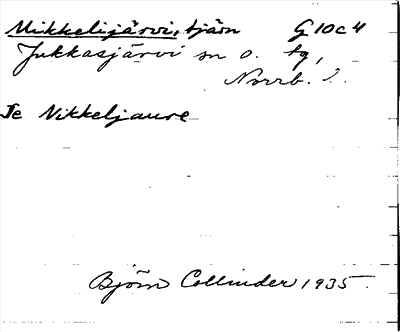 Mikkelijärvi, tjärn G10c4
Jukkasjärvi sn o. tg,
Norrb. l.
Se Nikkeljaure
Björn Collinder 1935.